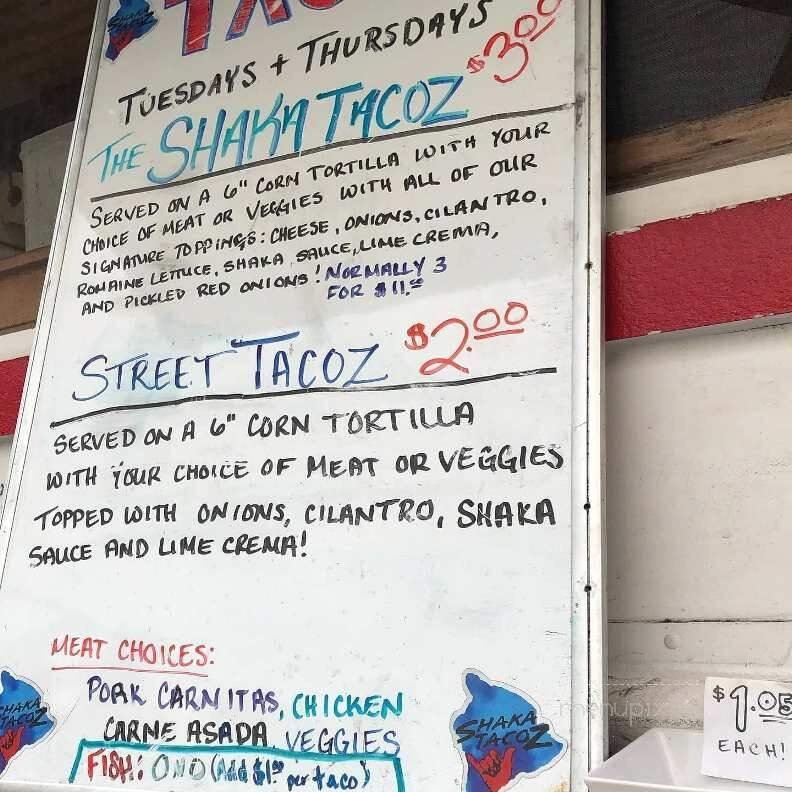 TAC
TUESDAYS + THURSDAYS
THE SHAKA TACOZ $3.00
SERVED ON A 6" CORN TORTILLA WITH YOUR
CHOICE OF MEAT OR VEGGIES WITH ALL OF OUR
SIGNATURE TOPPINGS: CHEESE, ONIONS, CILANTRO,
ROMAINE LETTUCE, SHAKA SAUCE, LIME CREMA,
AND PICKLED RED ONIONS! NORMALLY 3
FOR $11.00
STREET TACOZ $2.00
SERVED ON A 6" CORN TORTILLA
WITH YOUR CHOICE OF MEAT OR VEGGIES
TOPPED WITH ONIONS, CILANTRO, SHAKA
SAUCE AND LIME CREMA!
MEAT CHOICES:
PORK CARNITAS, CHICKEN
CARNE ASADA, VEGGIES
FISH: ONO (Add $1.00 per taco)
SHAKA
TACOZ
SHAKA
TACOZ
$1.05
EACH!
menupix